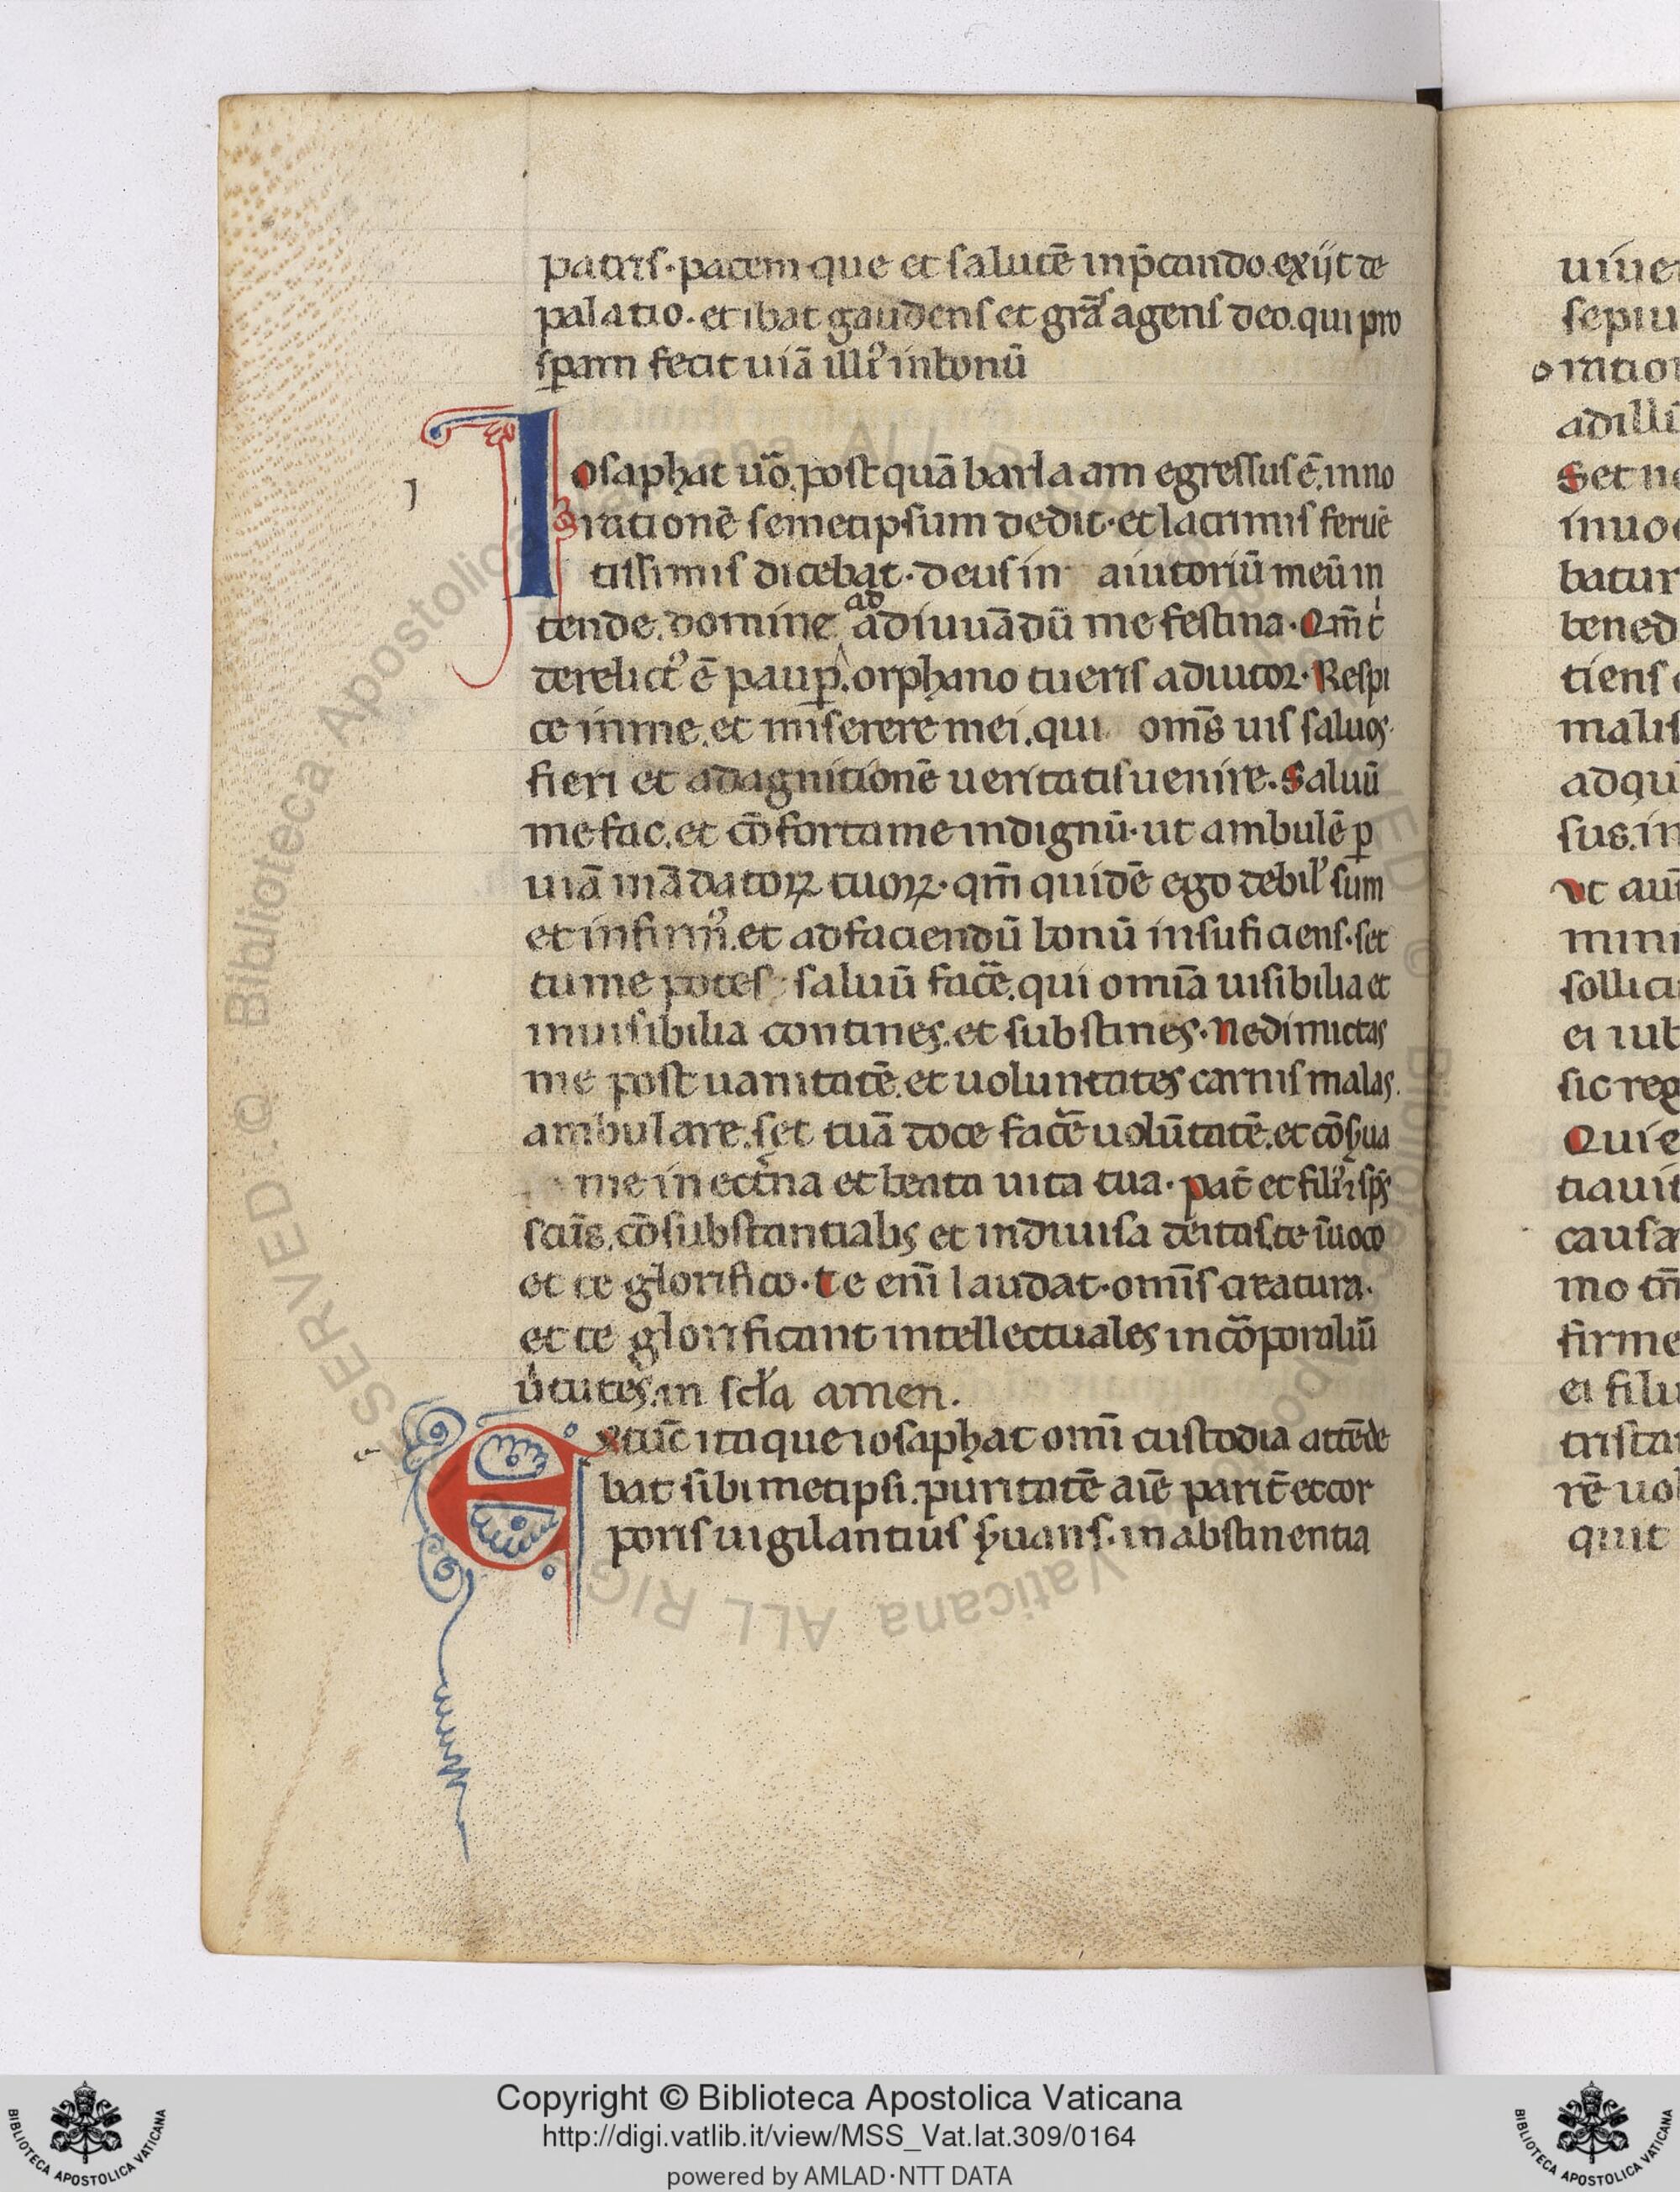 patris·pacem·que et salutē inp̄cando.exijt de
palatio.et ibat gaudens et grās agens deo.qui pro
sꝑam fecit uiā illiꝰ inbonū
Iosaphat uo᷒.postquā barlaam egressus ē.inno
rationē semetipsum dedit·et lacrimis feruē
tissimis dicebat·deus in aiutoriū meū in
tende.domine ad adiuuādū me festina·Qm̄ t'
derelictꝰ ē pauꝑ.orphano tu eris adiutor·Respi
ce inme.et miserere mei.qui om̄s uis saluos
fieri et adagnitionē ueritatis uenire.Saluū
me fac.et cō forta me indignū·ut ambulē ꝑ
uiā mādatoꝝ tuoꝝ·qm̄ quidē ego debil' sum
et infirmꝰ.et ad faciendū bonū insuficiens·set
tu me potes saluū facē.qui omīa uisibilia et
inuisibilia contines.et substines·Nedimictas
me post uanitatē.et uoluntates carnis malas.
ambulare.set tuā doce facē uolūtatē.et cōs̄ua
me in ect̄na et beata uita tua·pat̄ et filiꝰ ⁊ sp̄s
sc̄ūs.cōsubstantialis et indiuisa deitas.te īuoco
et te glorifico·te enī laudat·omīs creatura·
et te glorificant intellectuales incōporaliū
u'tutes.in sc̄la amen.
Extūc itaque iosaphat omī custodia attēde
bat sibimetipsi.puritatē aīe parit̄ et cor
poris uigilantius s̄uans.in abstinentia
J
e
uiue
sepiu
oratio
adilli
Set n
inuo
batur
bened
tiens
malis
adqu
sus.in
Vt au
mini
sollici
ei iub
sic reg
Quie
tiauit
causa
mo tn̄
firme
ei fili
trista
rē uo
quit
Copyright © Biblioteca Apostolica Vaticana
http://digi.vatlib.it/view/MSS_Vat.lat.309/0164
powered by AMLAD·NTT DATA
BIBLIOTECA APOSTOLICA VATICANA
BIBLIOTECA APOSTOLICA VATICANA